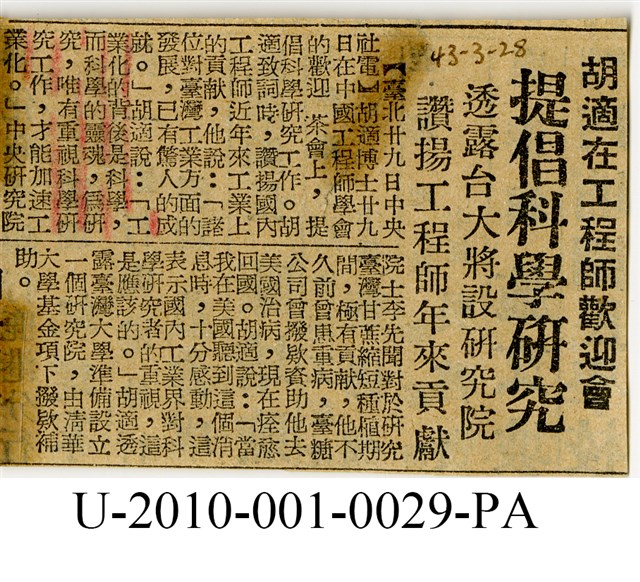 胡適在工程師歡迎會
提倡科學研究
透露台大將設研究院
讚揚工程師年來貢獻
43-3-28
【臺北廿九日中央
社電】胡適博士廿九
日在中國工程師學會
的歡迎茶會上，提
倡科學研究工作。胡
適致詞時，讚揚國內
工程師近年來工業上
的貢獻，他說：「諸
位對臺灣工業方面的
發展，已有驚人的成
就。」胡適說：「工
業化的背後是科學，
而科學的靈魂，爲研
究，唯有重視科學研
究工作，才能加速工
業化。」中央研究院
院士李先聞對於研究
臺灣甘蔗縮短種植期
間，極有貢獻，他不
久前曾患重病，臺糖
公司曾撥欵資助他去
美國治病，現在痊癒
回國。胡適說：「當
我在美國聽到這個消
息時，十分感動，這
表示國內工業界對科
學研究者的重視，這
是應該的。」胡適透
露臺灣大學準備設立
一個研究院，由淸華
大學基金項下撥欵補
助。
U-2010-001-0029-PA